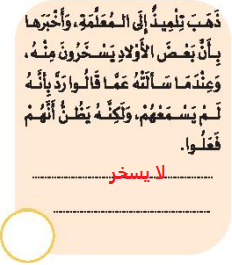 ذَهَبَ تِلْمِيذٌ إِلَى الـمُعَلِّمَةِ، وَأَخْبَرَها
بِأَنَّ بَعْضَ الْأَوْلَادِ يَسْخَرُونَ مِنْهُ،
وَعِنْدَمَا سَأَلَتْهُ عَمَّا قَالُوا رَدَّ بِأَنَّهُ
لَمْ يَسْمَعْهُمْ، وَلَكِنَّهُ يَظُنُّ أَنَّهُمْ
فَعَلُوا.
لا يسخر